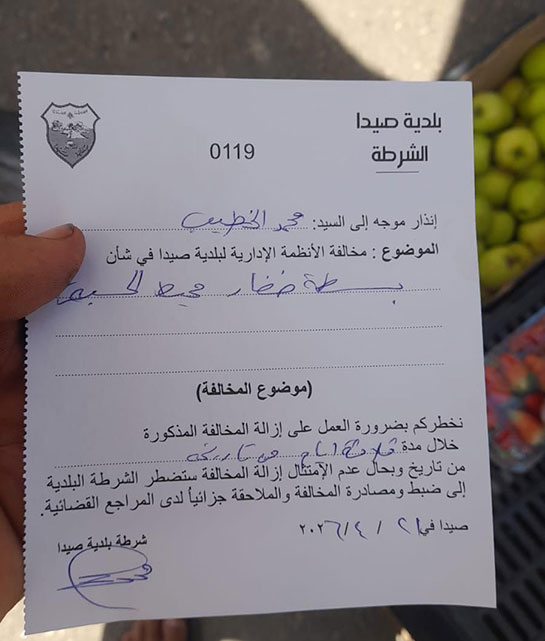 بلدية صيدا
الشرطة
0119
إنذار موجه إلى السيد: محمد الخطيب
الموضوع : مخالفة الأنظمة الإدارية لبلدية صيدا في شأن
بسطة خضار محيط الحسبة
(موضوع المخالفة)
نخطركم بضرورة العمل على إزالة المخالفة المذكورة
خلال مدة ثلاثة أيام من تاريخه
من تاريخ وبحال عدم الإمتثال إزالة المخالفة ستضطر الشرطة البلدية
إلى ضبط ومصادرة المخالفة والملاحقة جزائياً لدى المراجع القضائية.
صيدا في ٢١ / ٤ / ٢٠٢٦
شرطة بلدية صيدا